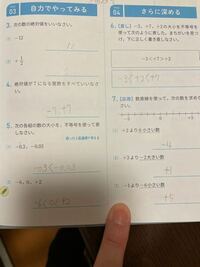 03 自力でやってみる
3. 次の数の絶対値をいいなさい。
(1) -12
(2) +1/2
4. 絶対値が7になる数をすべていいなさい。
-7, +7
5. 次の各組の数の大小を、不等号を使って表しなさい。
(1) -0.3, -0.03
(2) -6, 0, +2
04 さらに深める
6. -3, +7, +2の大小を不等号を使って次のように表した。まちがいを見つけ、下に正しく書き直しなさい。
-3<+2<+7
7. 数直線を使って、次の数を求め
(1) +2より6小さい数
-4
(2) +3より-2大きい数
+1
(3) -1より-6小さい数
+5